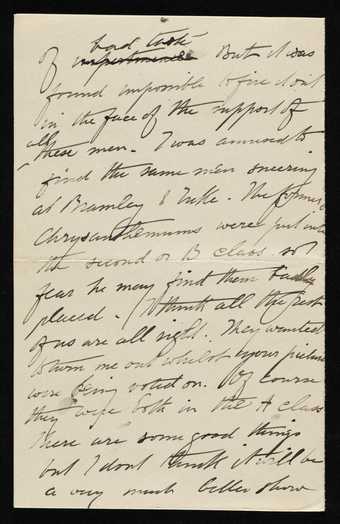 of bad taste impertinence But it was
found impossible to fire it out
in the face of the support of
all these men. I was amused to
find the same men sneering
at Bramley & Tuke. The former's
Chrysanthemums were put into
the second or B class so I
fear he may find them badly
placed. I think all the rest
of us are all right. They wanted
to turn me out whilst your picture
were being voted on. Of course
they were both in the A class
There are some good things
but I dont think it will be
a very much better show